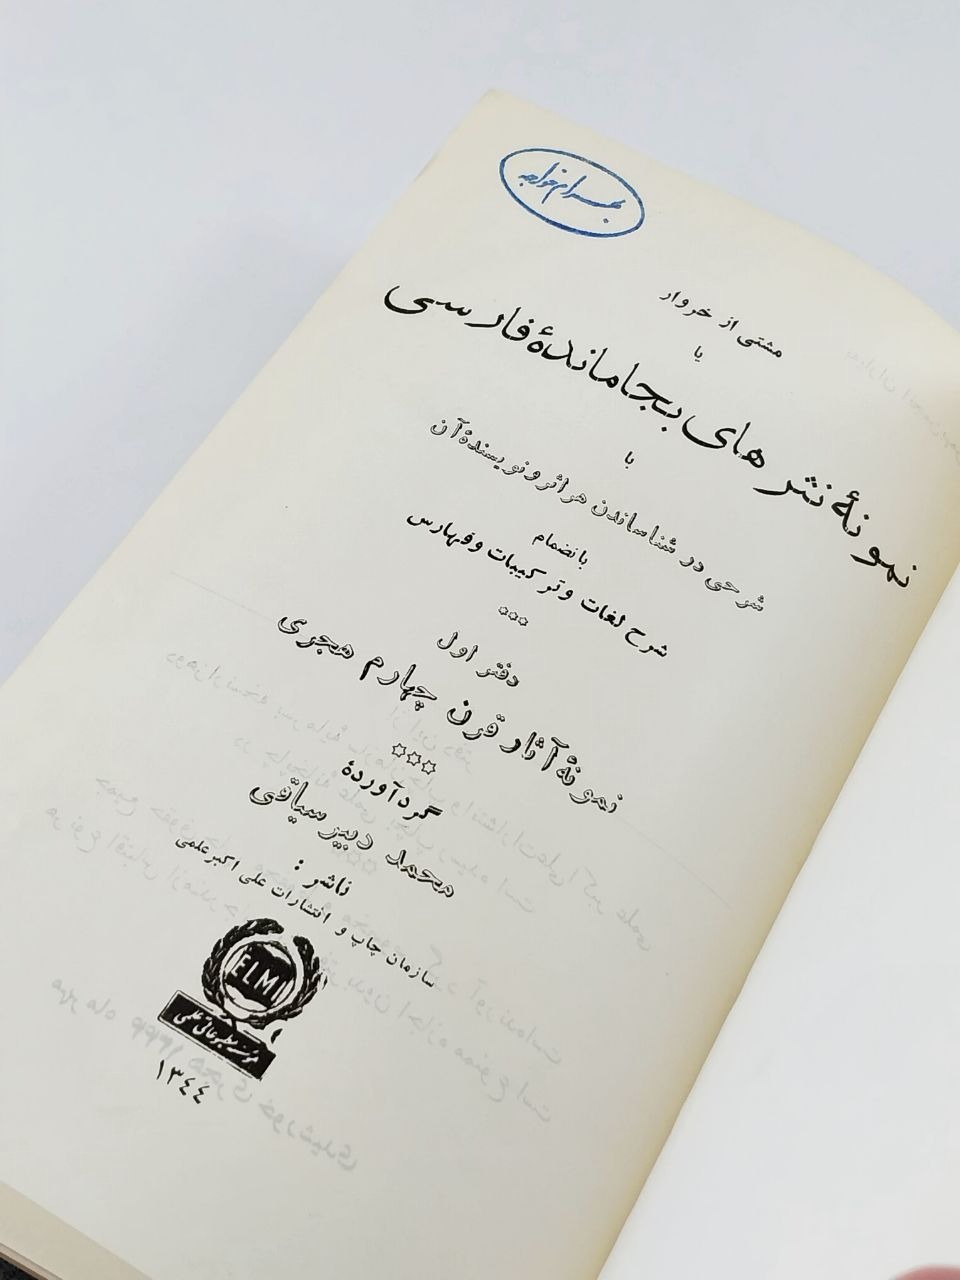 بهرام خواجه
مشتی از خروار
یا
نمونهٔ نثر های بجاماندهٔ فارسی
با
شرحی در شناساندن هر اثر و نویسندهٔ آن
بانضمام
شرح لغات و ترکیبات و فهارس
***
دفتر اول
نمونهٔ آثار قرن چهارم هجری
***
گردآوردهٔ
محمد دبیر سیاقی
ناشر :
سازمان چاپ و انتشارات علی اکبر علمی
ELMI
مؤسسه مطبوعاتی علمی
۱۳٤٤